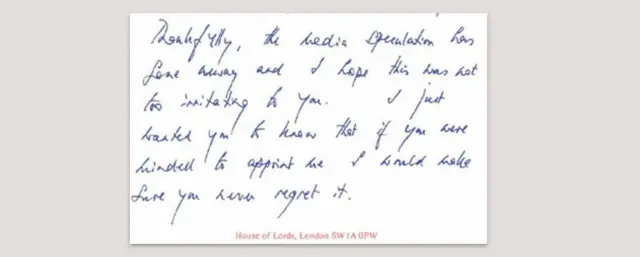 Thankfully, the media speculation has
gone away and I hope this was not
too irritating to you. I just
wanted you to know that if you were
minded to appoint me I would make
sure you never regret it.
House of Lords, London SW1A 0PW